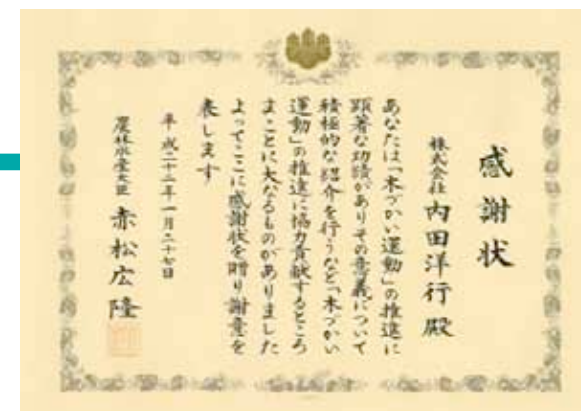 感謝状
株式会社 内田洋行 殿
あなたは「木づかい運動」の推進に
顕著な功績がありその意義について
積極的な紹介を行うなど「木づかい
運動」の推進に協力貢献するところ
まことに大なるものがありました
よってここに感謝状を贈り謝意を
表します
平成二十二年一月二十七日
農林水産大臣 赤松広隆